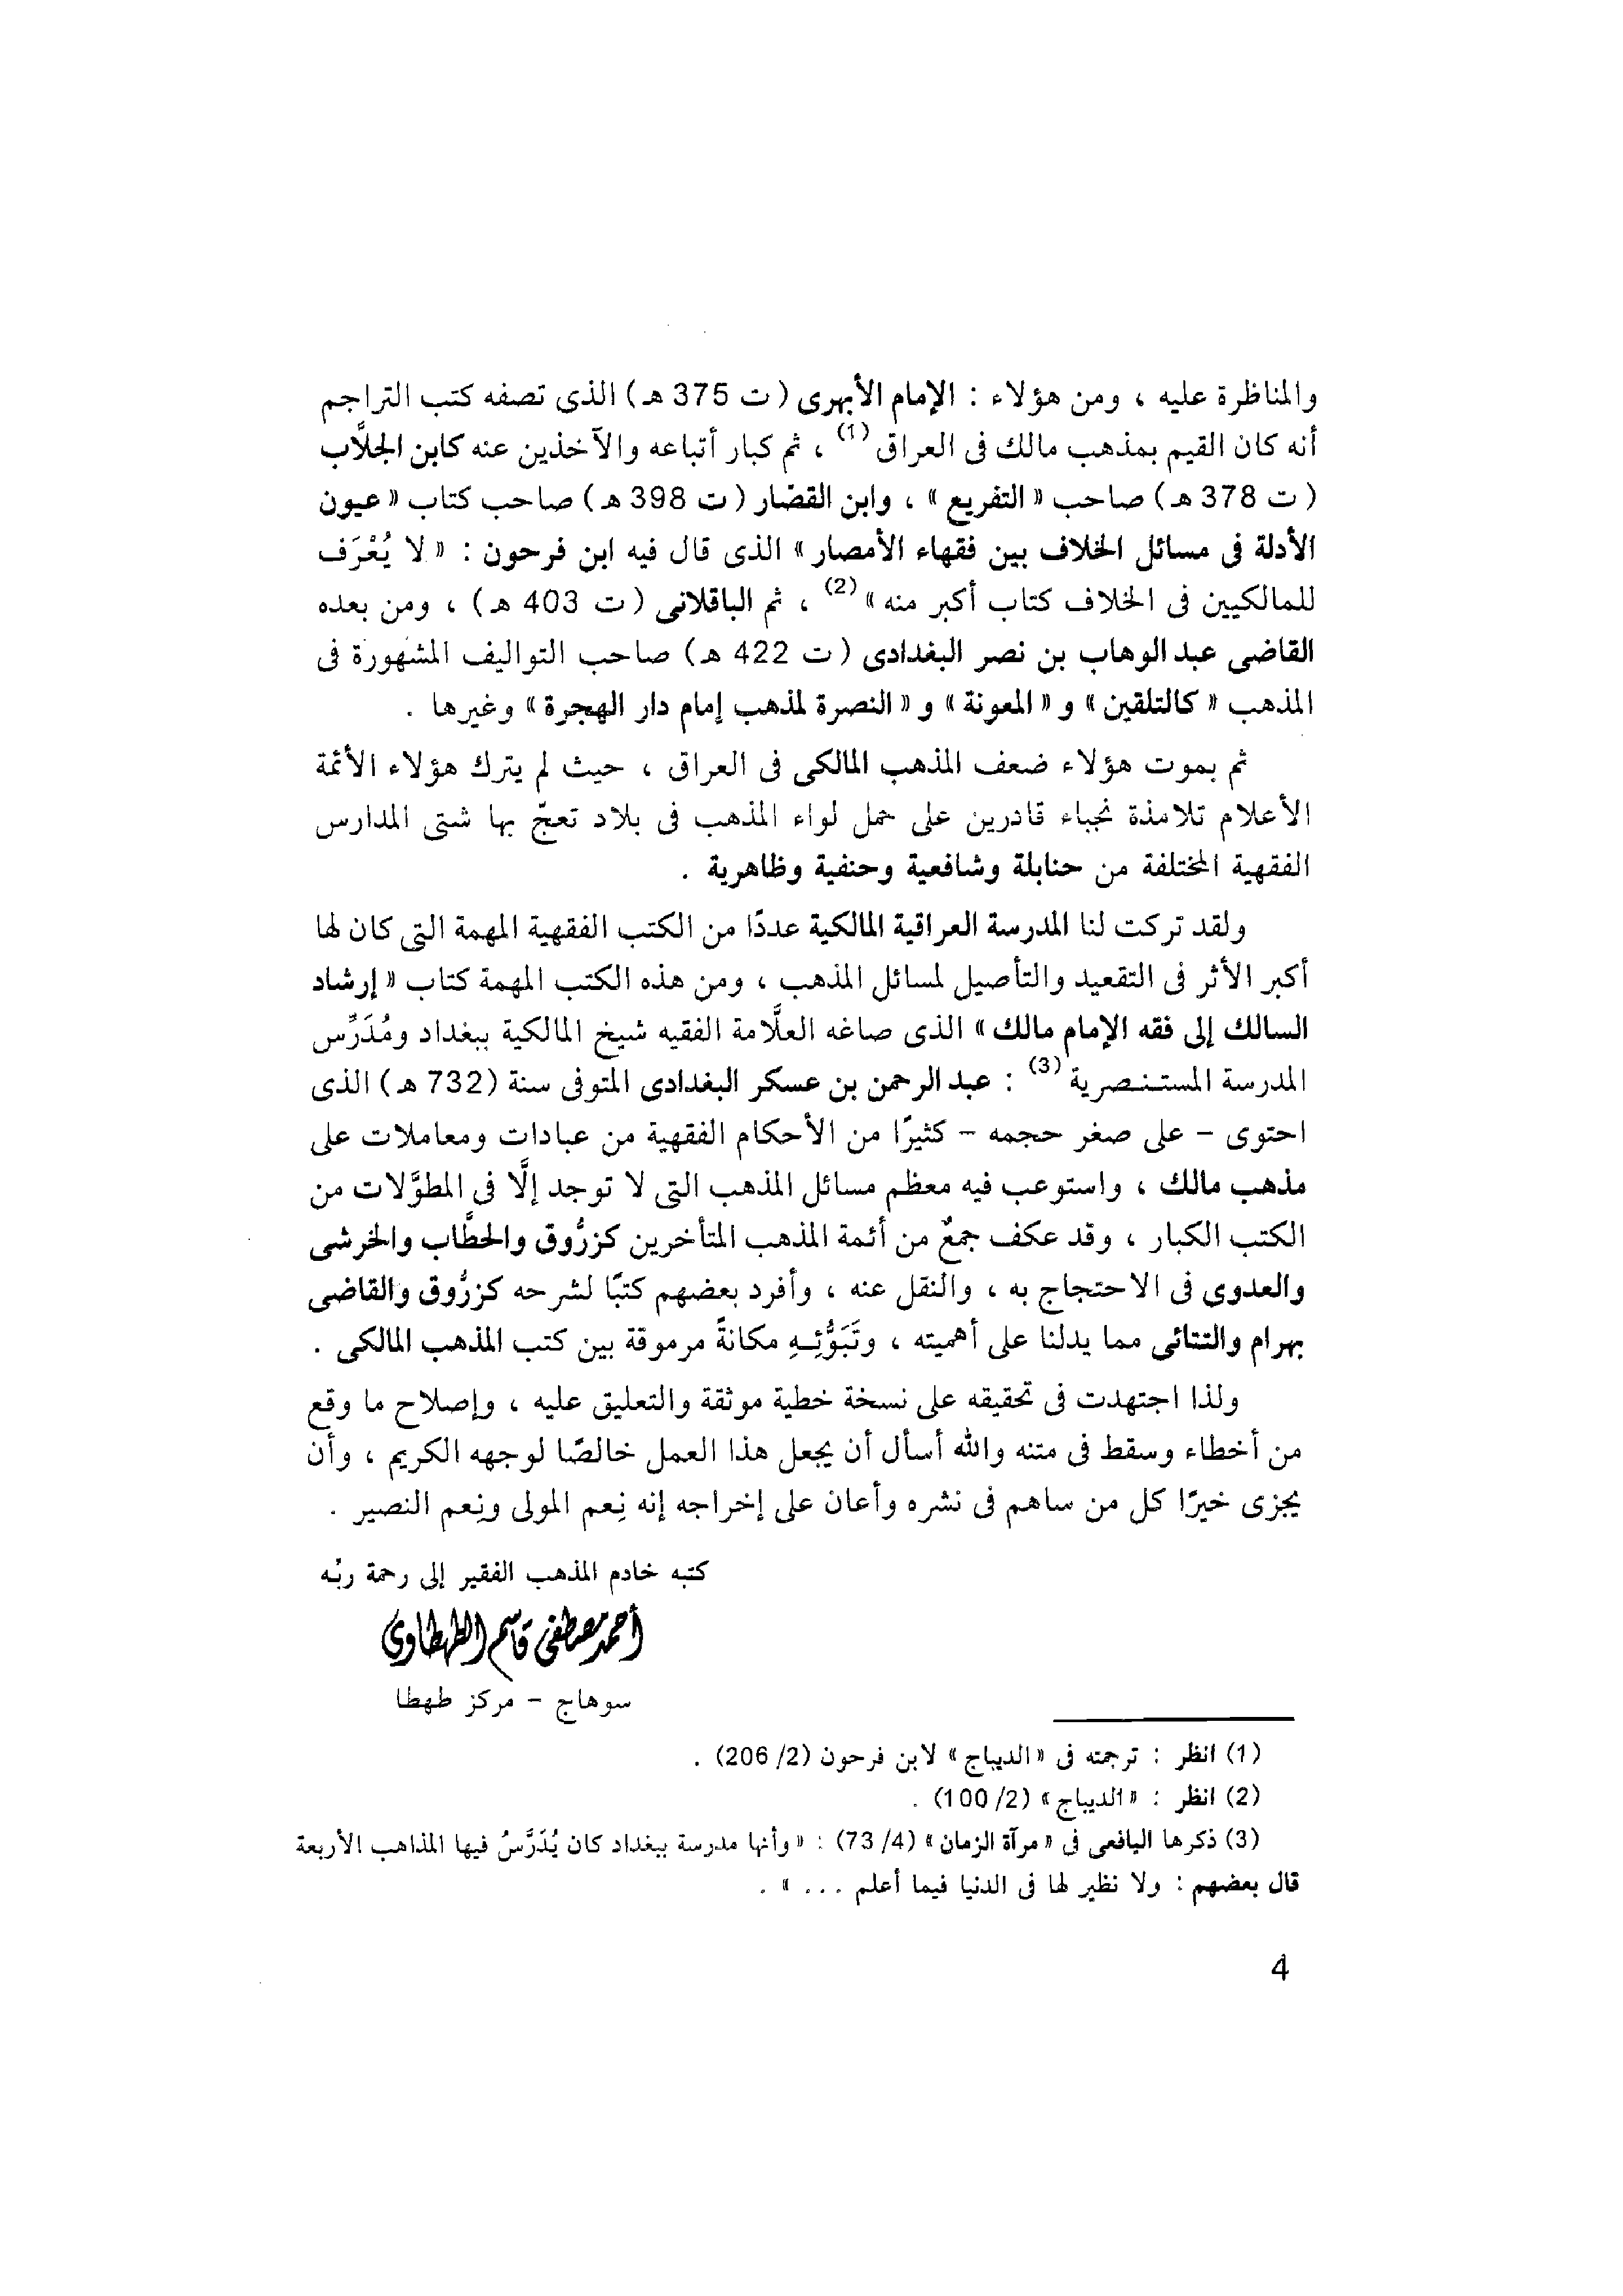 والمناظرة عليه ، ومن هؤلاء : الإمام الأبهرى ( ت 375 هـ) الذى تصفه كتب التراجم
أنه كان القيم بمذهب مالك فى العراق (1) ، ثم كبار أتباعه والآخذين عنه كابن الجلَّاب
( ت 378 هـ) صاحب « التفريع » ، وابن القصّار ( ت 398 هـ) صاحب كتاب « عيون
الأدلة فى مسائل الخلاف بين فقهاء الأمصار » الذى قال فيه ابن فرحون : « لا يُعْرَف
للمالكيين فى الخلاف كتاب أكبر منه » (2) ، ثم الباقلانى ( ت 403 هـ) ، ومن بعده
القاضى عبد الوهاب بن نصر البغدادى ( ت 422 هـ) صاحب التواليف المشهورة فى
المذهب « كالتلقين » و « المعونة » و « النصرة لمذهب إمام دار الهجرة » وغيرها .
ثم بموت هؤلاء ضعف المذهب المالكى فى العراق ، حيث لم يترك هؤلاء الأئمة
الأعلام تلامذة نجباء قادرين على حمل لواء المذهب فى بلاد تعجّ بها شتى المدارس
الفقهية المختلفة من حنابلة وشافعية وحنفية وظاهرية .
ولقد تركت لنا المدرسة العراقية المالكية عددًا من الكتب الفقهية المهمة التى كان لها
أكبر الأثر فى التقعيد والتأصيل لمسائل المذهب ، ومن هذه الكتب المهمة كتاب « إرشاد
السالك إلى فقه الإمام مالك » الذى صاغه العلَّامة الفقيه شيخ المالكية ببغداد ومُدَرِّس
المدرسة المستنصرية (3) : عبد الرحمن بن عسكر البغدادى المتوفى سنة (732 هـ) الذى
احتوى - على صغر حجمه - كثيرًا من الأحكام الفقهية من عبادات ومعاملات على
مذهب مالك ، واستوعب فيه معظم مسائل المذهب التى لا توجد إلَّا فى المطوَّلات من
الكتب الكبار ، وقد عكف جمعٌ من أئمة المذهب المتأخرين كزرُّوق والحطَّاب والخرشى
والعدوى فى الاحتجاج به ، والنقل عنه ، وأفرد بعضهم كتبًا لشرحه كزرُّوق والقاضى
بهرام والتتائى مما يدلنا على أهميته ، وتَبَوُّئِهِ مكانةً مرموقة بين كتب المذهب المالكى .
ولذا اجتهدت فى تحقيقه على نسخة خطية موثقة والتعليق عليه ، وإصلاح ما وقع
من أخطاء وسقط فى متنه والله أسأل أن يجعل هذا العمل خالصًا لوجهه الكريم ، وأن
يجزى خيرًا كل من ساهم فى نشره وأعان على إخراجه إنه نِعم المولى ونِعم النصير .
كتبه خادم المذهب الفقير إلى رحمة ربّه
أحمد مصطفى قاسم الطهطاوى
سوهاج - مركز طهطا
(1) انظر : ترجمته فى «الديباج » لابن فرحون (2/ 206) .
(2) انظر : «الديباج » (2/ 100) .
(3) ذكرها اليافعى فى « مرآة الزمان » (4/ 73) : « وأنها مدرسة ببغداد كان يُدَرَّسُ فيها المذاهب الأربعة
قال بعضهم : ولا نظير لها فى الدنيا فيما أعلم ... » .
4